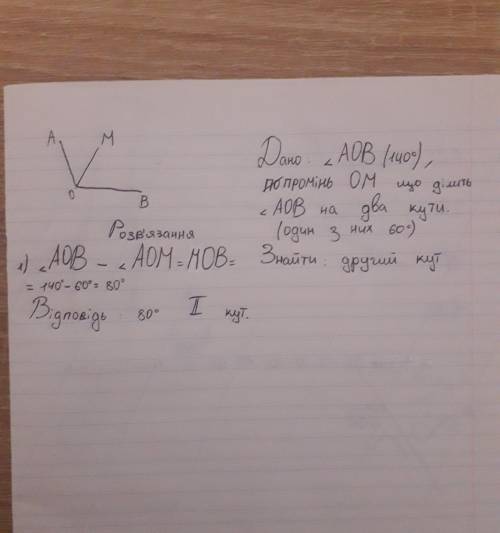 A
M
O
B
Дано: ∠ AOB (140°),
промінь OM що ділить
∠ AOB на два кути.
(один з них 60°)
Знайти: другий кут
Розв'язання
1) ∠AOB - ∠AOM = MOB =
= 140° - 60° = 80°
Відповідь: 80° II кут.